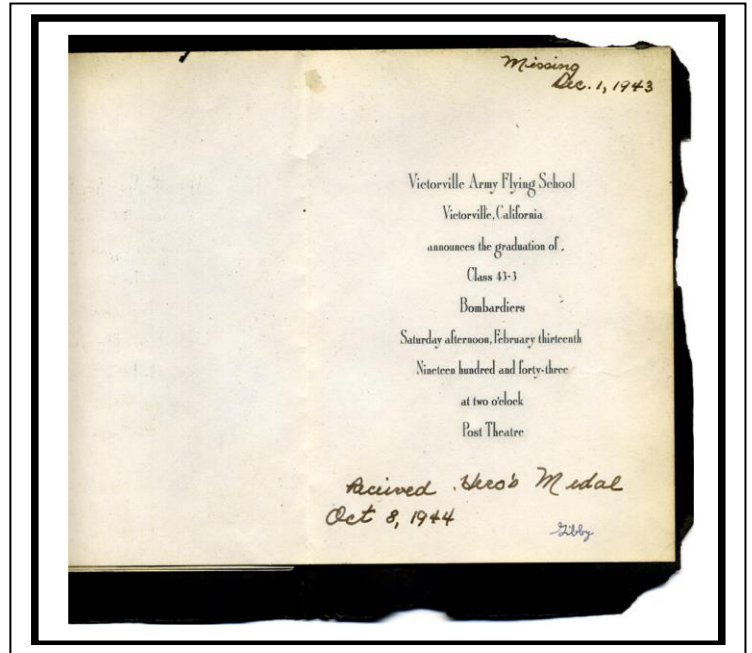 Missing
Dec. 1, 1943
Victorville Army Flying School
Victorville, California
announces the graduation of
Class 43-3
Bombardiers
Saturday afternoon, February thirteenth
Nineteen hundred and forty-three
at two o'clock
Post Theatre
Recieved Hero's Medal
Oct 8, 1944
Gibby